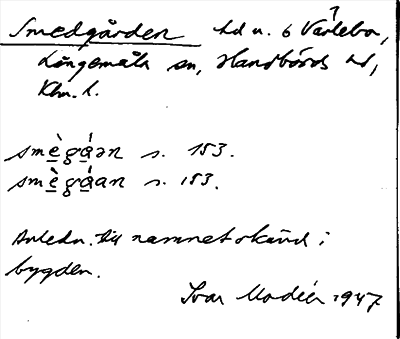 Smedgården hd n. 6 Värlebo,
Långemåla sn, Handbörds hd,
Klm. l.
smègá̱ən s. 153.
smègá̱an s. 153.
Anledn. till namnet okänd i
bygden.
Ivar Modéer 1947